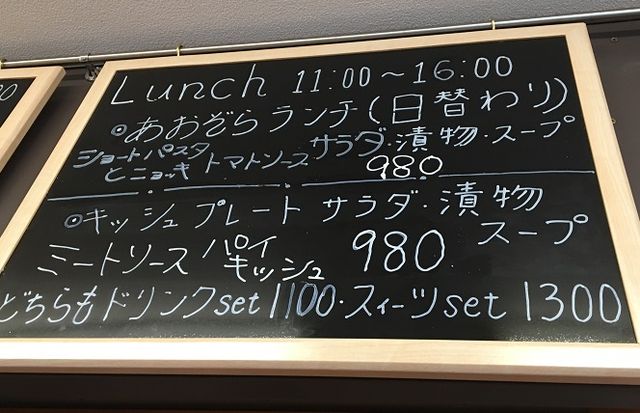 Lunch 11:00～16:00
◉あおぞらランチ(日替わり)
ショートパスタとニョッキ トマトソース サラダ・漬物・スープ
980
◉キッシュプレート サラダ・漬物
スープ
ミートソース パイ キッシュ 980
どちらもドリンクset 1100・スイーツset 1300